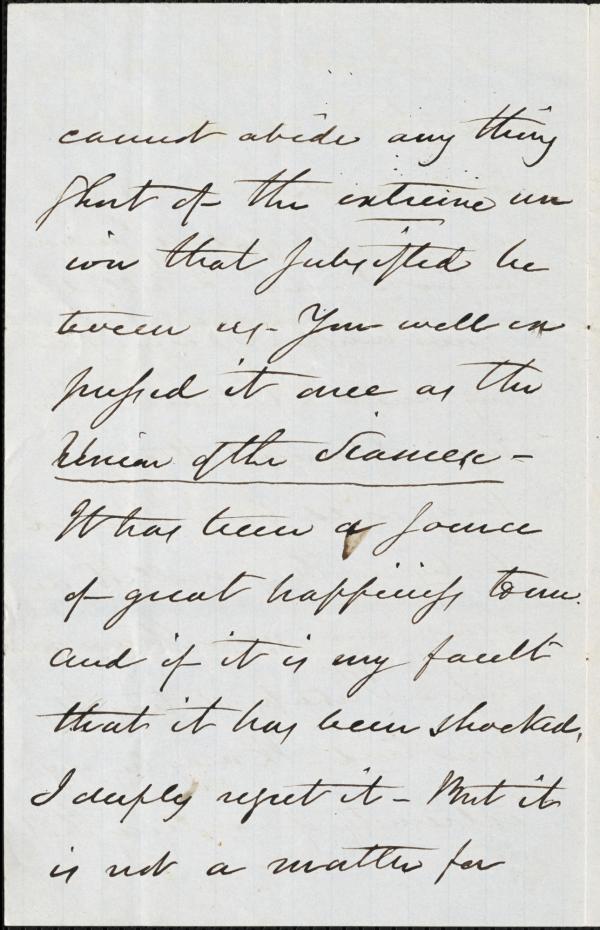 cannot abide any thing
short of the extreme un
ion that subsisted be
tween us - You well ex
pressed it once as the
Union of the Siamese -
It has been a source
of great happiness to me.
and if it is my fault
that it has been shocked,
I deeply regret it - But it
is not a matter for